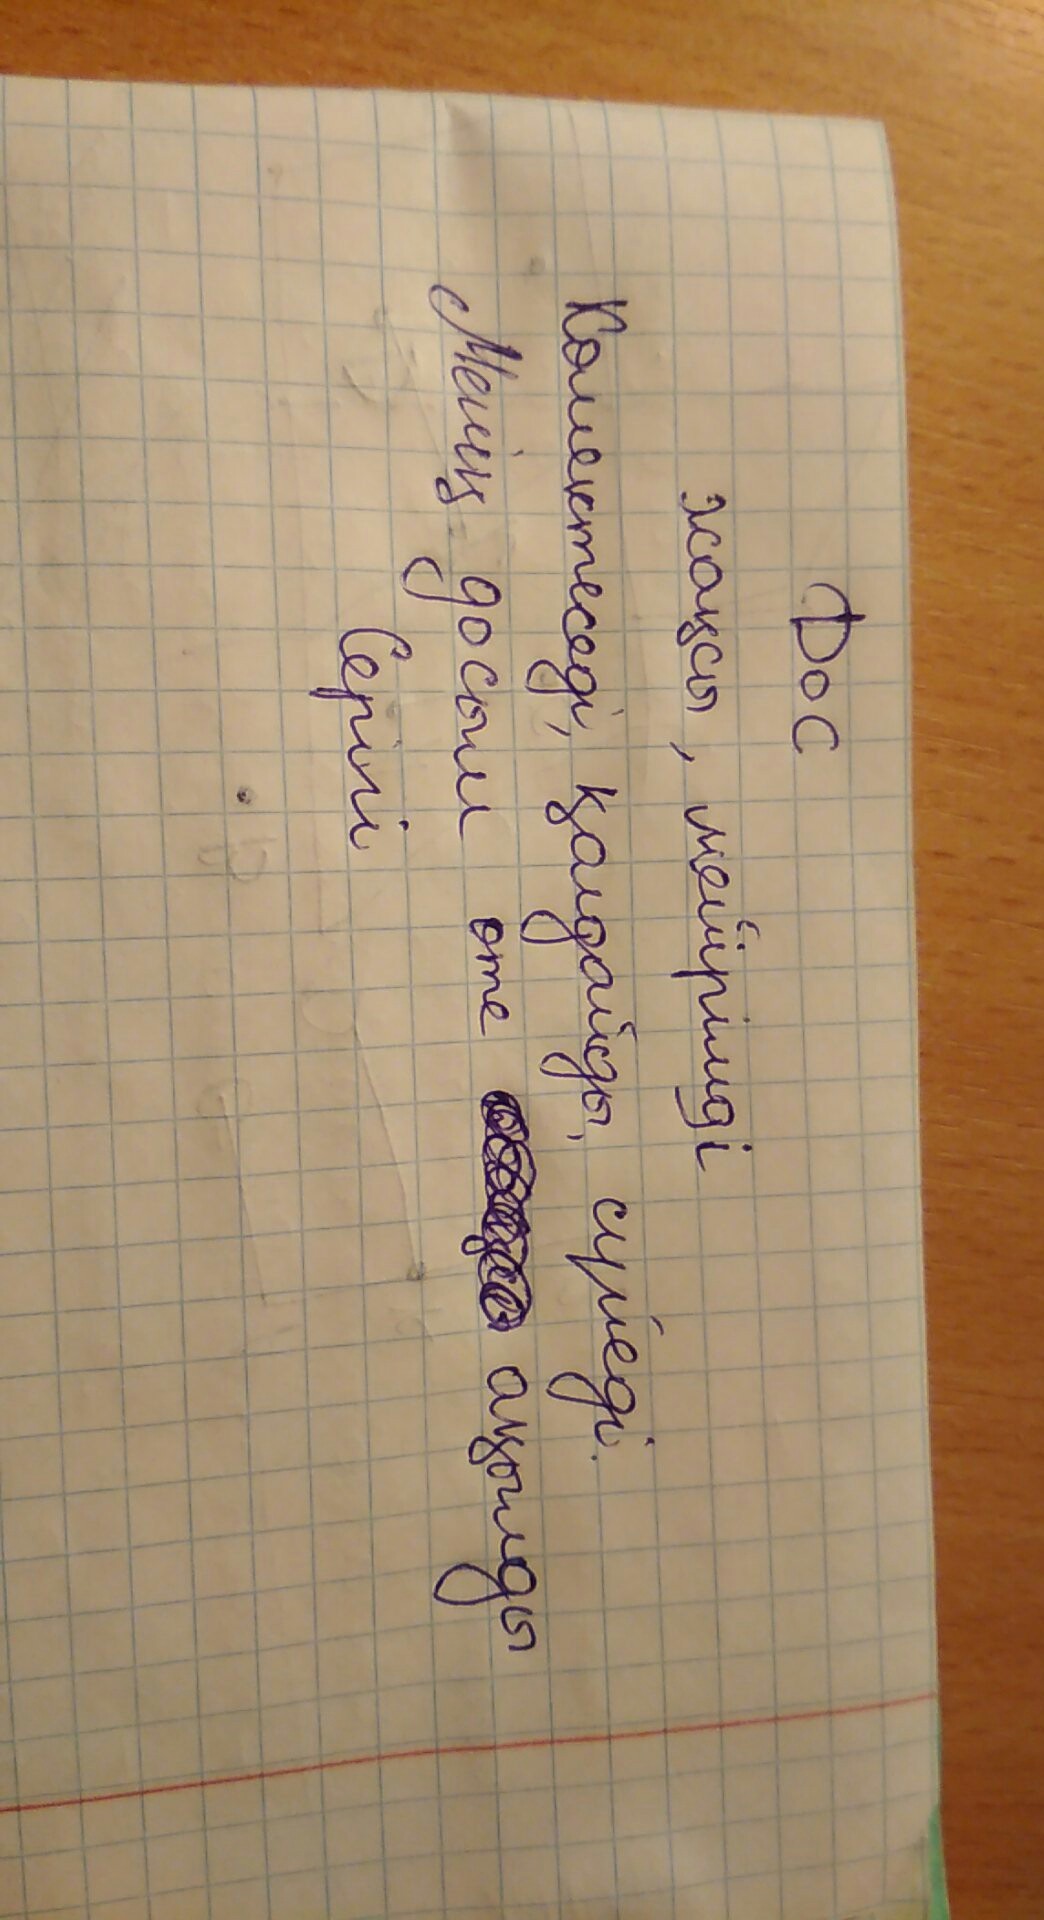 Дос
жақсы, мейірімді
Комектеседі, қалдайды, сүйеді.
Менің досым оте ақылды
Серігі